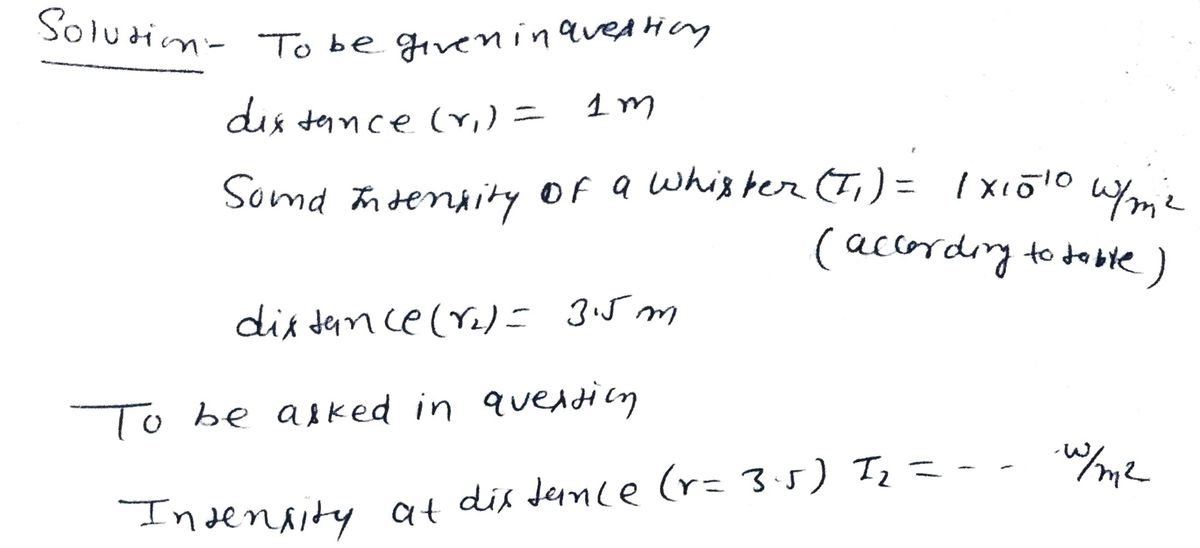 Solution:- To be given in question
distance (r₁) = 1 m
Sound Intensity of a whisper (I₁) = 1 × 10⁻¹⁰ W/m²
(according to table)
distance (r₂) = 3.5 m
To be asked in question
Intensity at distance (r = 3.5) I₂ = - - W/m²